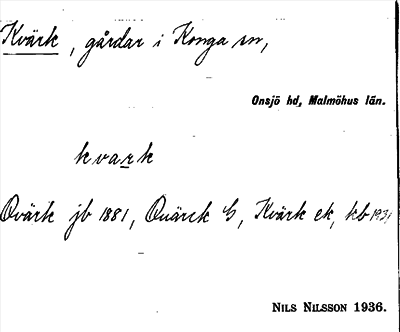 Kvärk, gårdar i Konga sn,
Onsjö hd, Malmöhus län.
kvark
Qvärk jb 1881, Quärck G, Kvärk ek, kb 1931
NILS NILSSON 1936.